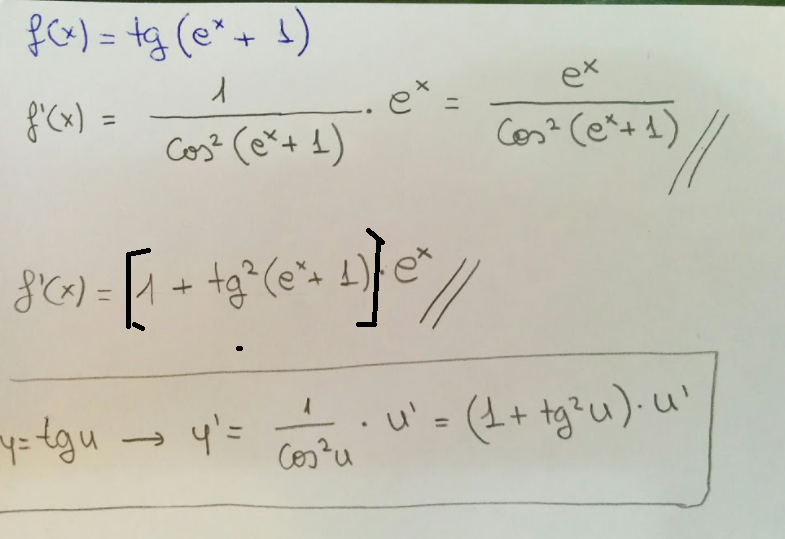 f(x) = tg (eˣ + 1)
f'(x) = 1 / cos² (eˣ + 1) · eˣ = eˣ / cos² (eˣ + 1) //
f'(x) = [1 + tg² (eˣ + 1)] · eˣ //
y = tg u → y' = 1 / cos² u · u' = (1 + tg² u) · u'